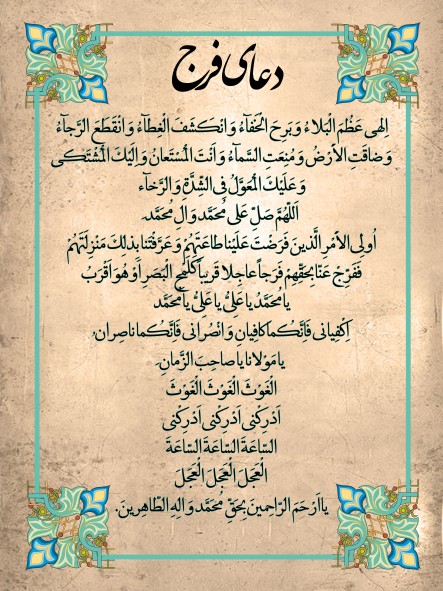 دعای فرج
اِلهى عَظُمَ الْبَلاءُ وَ بَرِحَ الْخَفآءُ وَ انْكَشَفَ الْغِطآءُ وَ انْقَطَعَ الرَّجآءُ
وَ ضاقَتِ الْاَرْضُ وَ مُنِعَتِ السَّمآءُ وَ اَنْتَ الْمُسْتَعانُ وَ اِلَيْكَ الْمُشْتَكى
وَ عَلَيْكَ الْمُعَوَّلُ فِى الشِّدَّةِ وَ الرَّخآءِ
اَللّهُمَّ صَلِّ عَلى مُحَمَّد وَ الِ مُحَمَّد,
اُولِى الْاَمْرِ الَّذينَ فَرَضْتَ عَلَيْنا طاعَتَهُمْ وَ عَرَّفْتَنا بِذلِكَ مَنْزِلَتَهُمْ
فَفَرِّجْ عَنّا بِحَقِّهِمْ فَرَجاً عاجِلا قَريباً كَلَمْحِ الْبَصَرِ اَوْ هُوَ اَقْرَبُ
يا مُحَمَّدُ يا عَلِىُّ يا عَلِىُّ يا مُحَمَّد
اِكْفِيانى فَاِنَّكُما كافِيانِ وَ انْصُرانى فَاِنَّكُما ناصِرانِ,
يا مَوْلانا يا صاحِبَ الزَّمانِ,
الْغَوْثَ الْغَوْثَ الْغَوْثَ
اَدْرِكْنى اَدْرِكْنى اَدْرِكْنى
السّاعَةَ السّاعَةَ السّاعَةَ
الْعَجَلَ الْعَجَلَ الْعَجَلَ
يا اَرْحَمَ الرّاحِمينَ بِحَقِّ مُحَمَّد وَ الِهِ الطّاهِرينَ.